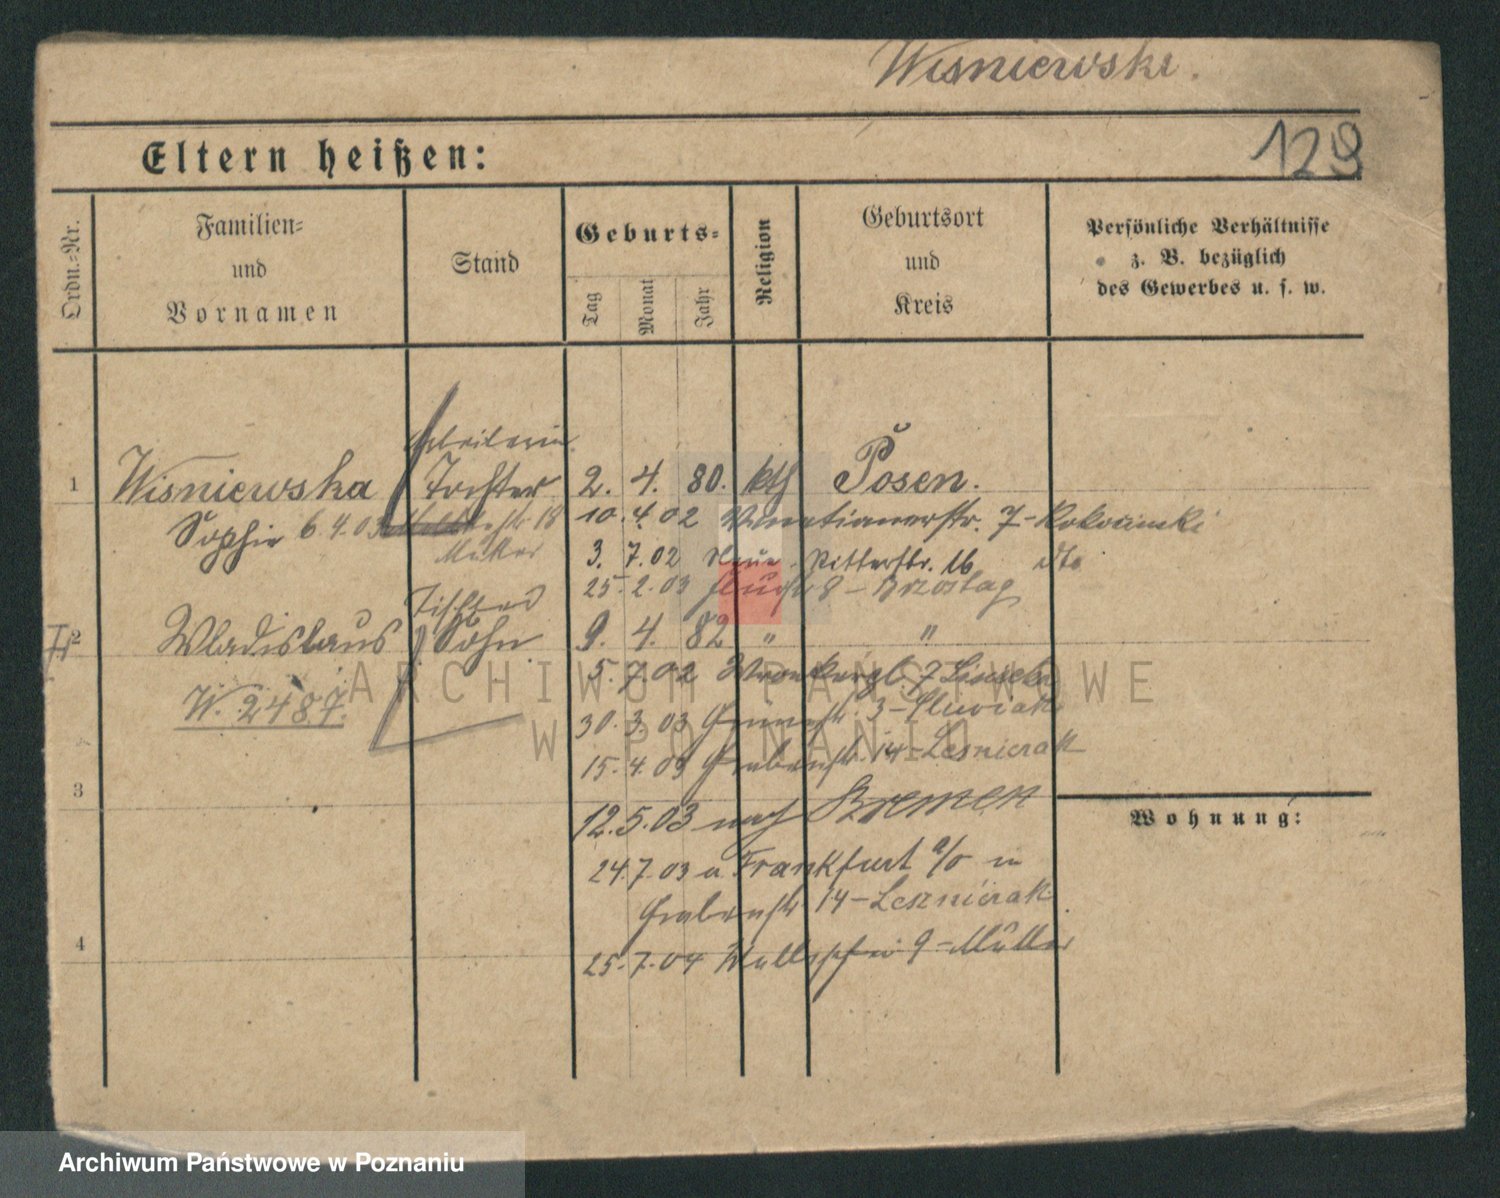 Wisniewski.
Eltern heißen:
129
Ordn.-Nr.
Familien-
und
Vornamen
Stand
Geburts-
Tag
Monat
Jahr
Religion
Geburtsort
und
Kreis
Persönliche Verhältnisse
z. B. bezüglich
des Gewerbes u. s. w.
Arbeiterin
1 Wisniewska Tochter 2. 4. 80. kth Posen.
Sophie 6.4.03 18 10.4.02 Venetianerstr. 7-Rokocinski
Müller 3. 7.02 Neue Ritterstr. 16 dto
25.2.03 8 - Brzostag
Tischler
2 Wladislaus Sohn 9. 4. 82 " "
5.7.02 Wronkerpl. 7
W. 2487.
30.3.03 3-
15.4.03 Grabenstr. 14-Lesnierak
3
12.5.03 nach Bremen
Wohnung:
24.7.03 v. Frankfurt a/O in
Grabenstr 14-Lesznierak
4
25.7.04 Wallischei 9-Müller
ARCHIWUM PAŃSTWOWE
W POZNANIU
Archiwum Państwowe w Poznaniu